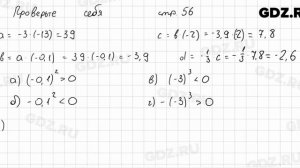 Проверьте себя стр. 56
GDZ.RU
a = -3·(-13) = 39 c = b(-2) = -3,9·(2) = 7,8
b = a·(-0,1) = 39·(-0,1) = -3,9 d = -1/3 c = -1/3·7,8 = -2,6
а) (-0,1)² > 0 в) (-3)³ < 0
б) -0,1² < 0 г) -(-3)³ > 0
)